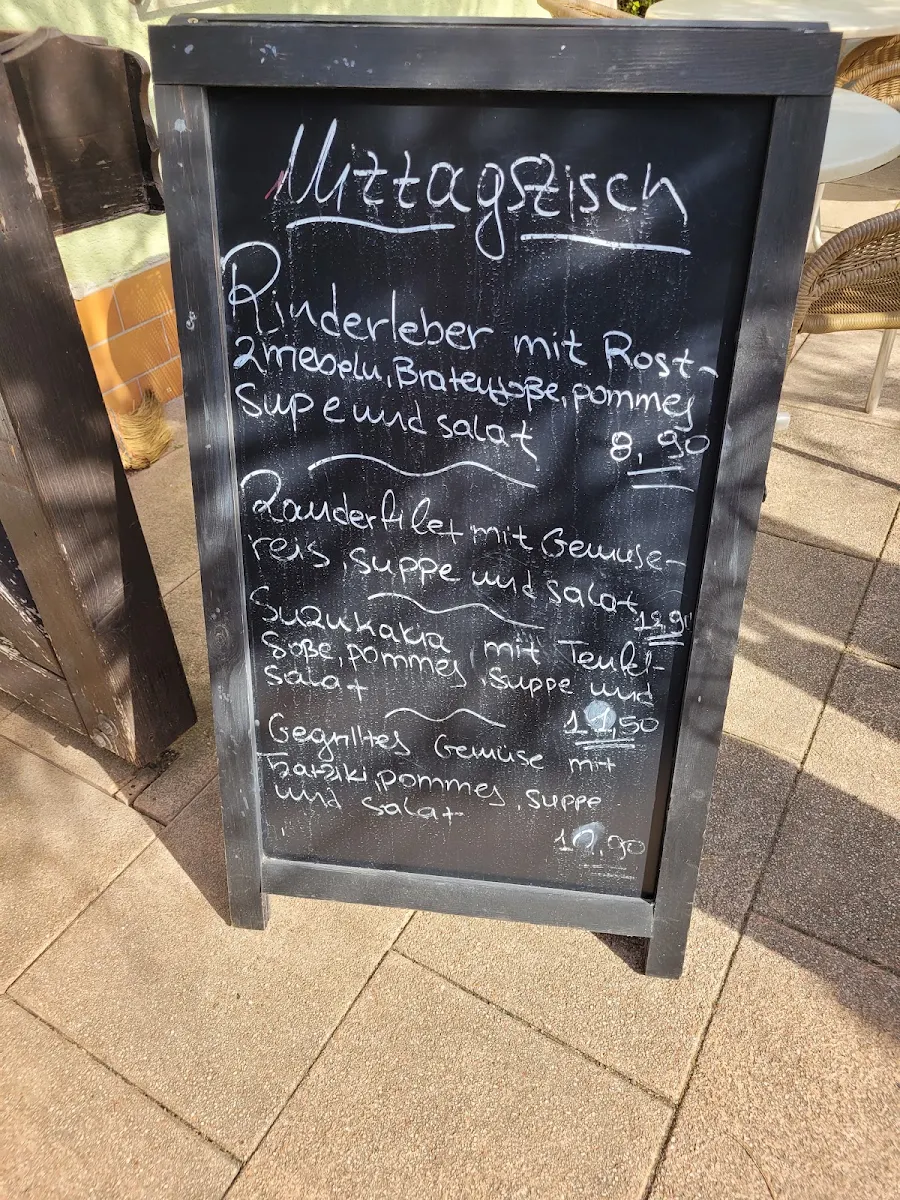 Mittagstisch
Rinderleber mit Rost-
zwiebeln, Bratensoße, pommes
Supe und salat 8,90
Zanderfilet mit Gemüse-
reis, suppe und salat
Suzukakia mit Teufel-
soße, pommes, suppe und
salat 11,50
Gegrilltes Gemüse mit
Tzatziki, pommes, suppe
und salat
10,90